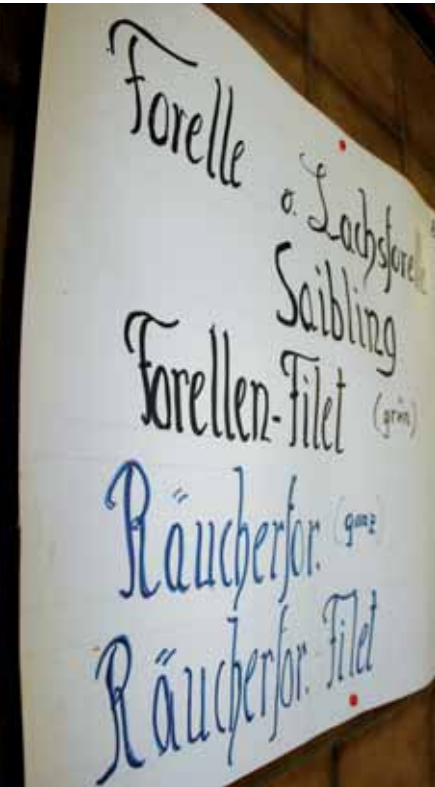 Forelle
o. Lachsforelle
Saibling
Forellen-Filet (grün)
Räucherfor. (ganz)
Räucherfor. Filet